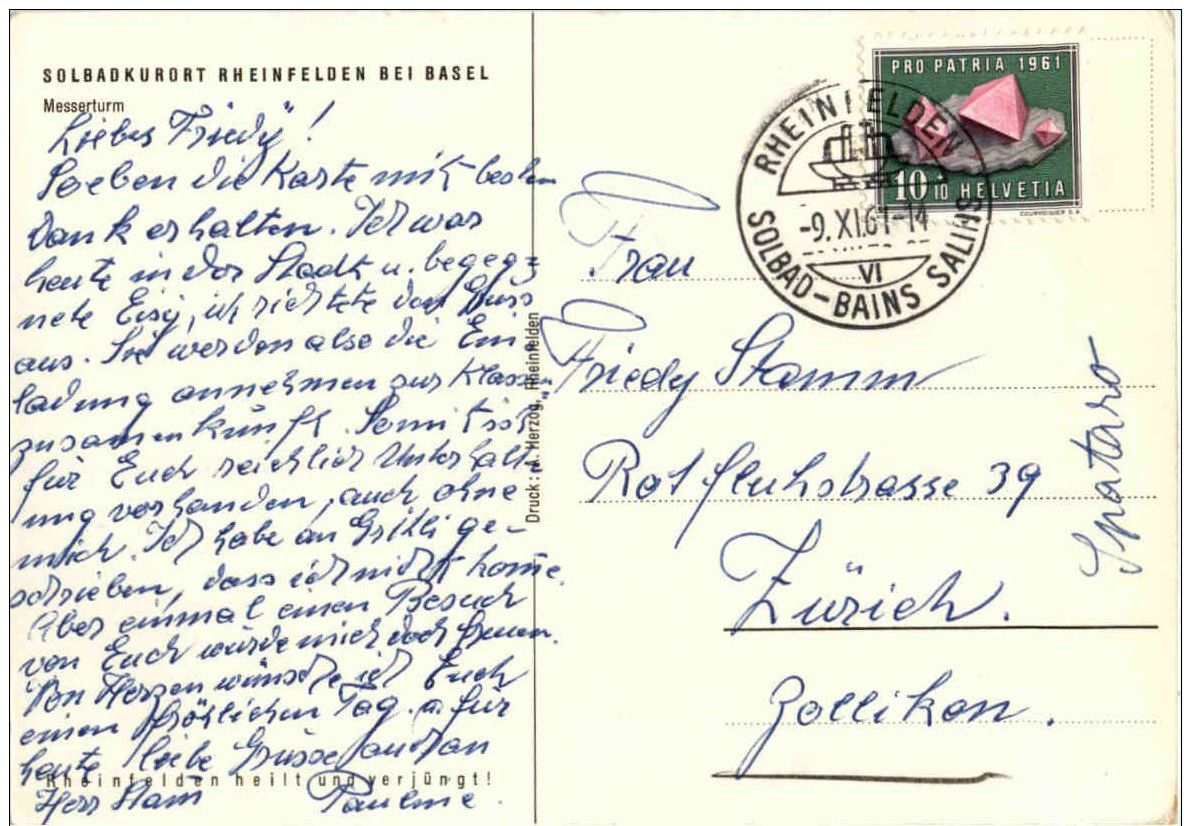 SOLBADKURORT RHEINFELDEN BEI BASEL
Messerturm
Liebes Friedy!
Soeben die Karte mit besten
Dank erhalten. Ich war
heute in der Stadt u. begeg=
nete Eisy, ich richtete den Gruss
aus. Sie werden also die Ein
ladung annehmen zur Klassen
zusammenkunft. Somit ist
für Euch reichlich Unterhalt
ung vorhanden, auch ohne
mich. Ich habe an Gritli ge-
schrieben, dass ich nicht kome.
Aber einmal einen Besuch
von Euch würde mich doch freuen.
Von Herzen wünsche ich Euch
einen fröhlichen Tag. u. für
heute liebe Grüsse auch an
Herr Stam Pauline.
Rheinfelden heilt und verjüngt!
Druck: A. Herzog, Rheinfelden
PRO PATRIA 1961
10+10 HELVETIA
COURVOISIER S.A.
RHEINFELDEN
-9.XI.61-14
VI
SOLBAD-BAINS SALINS
Frau
Friedy Stamm
Rotfluhstrasse 39
Zürich.
Zollikon.
Spataro